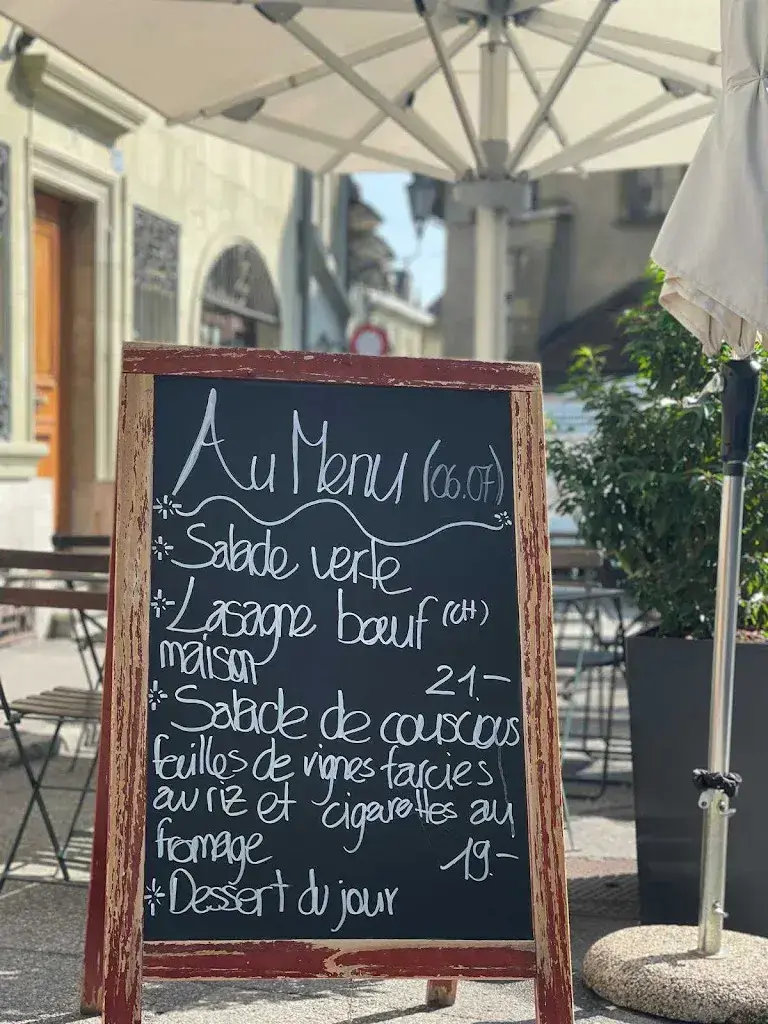 Au Menu (06.07)
Salade verte
Lasagne bœuf (CH)
maison 21.-
Salade de couscous
feuilles de vignes farcies
au riz et cigarettes au
fromage 19.-
Dessert du jour